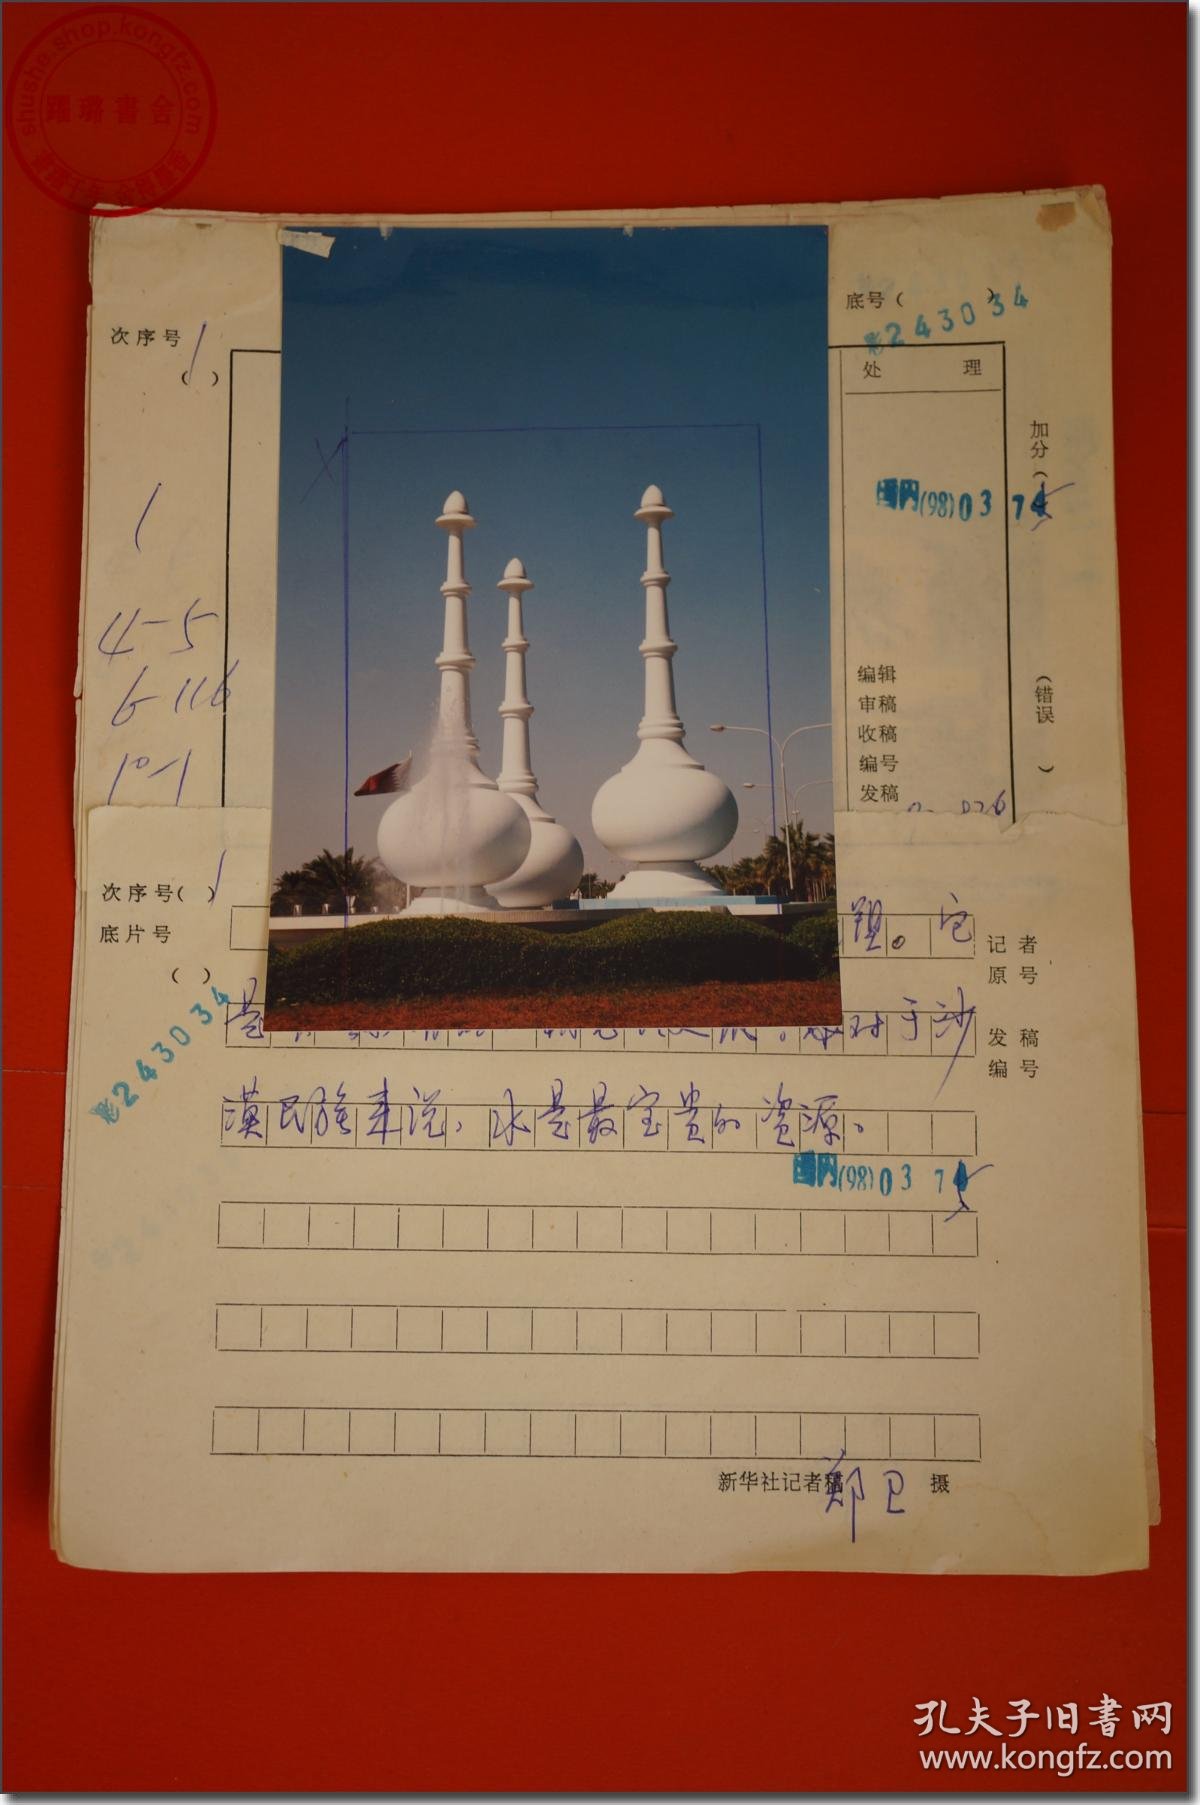 shushe.shop.kongfz.com
躍璐書舍
次序号
1
( )
底号( )
彩243034
处 理
加分(
国内(98)03 7
1
4-5
6-116
10-1
编辑
审稿
收稿
编号
发稿
(错误 )
次序号( )
1
底片号
( )
彩243034
塑。它
记者
原号
是
对于沙
发稿
编号
漠民族来说，水是最宝贵的资源。
国内(98)03 7
新华社记者稿 郑卫 摄
孔夫子旧书网
www.kongfz.com